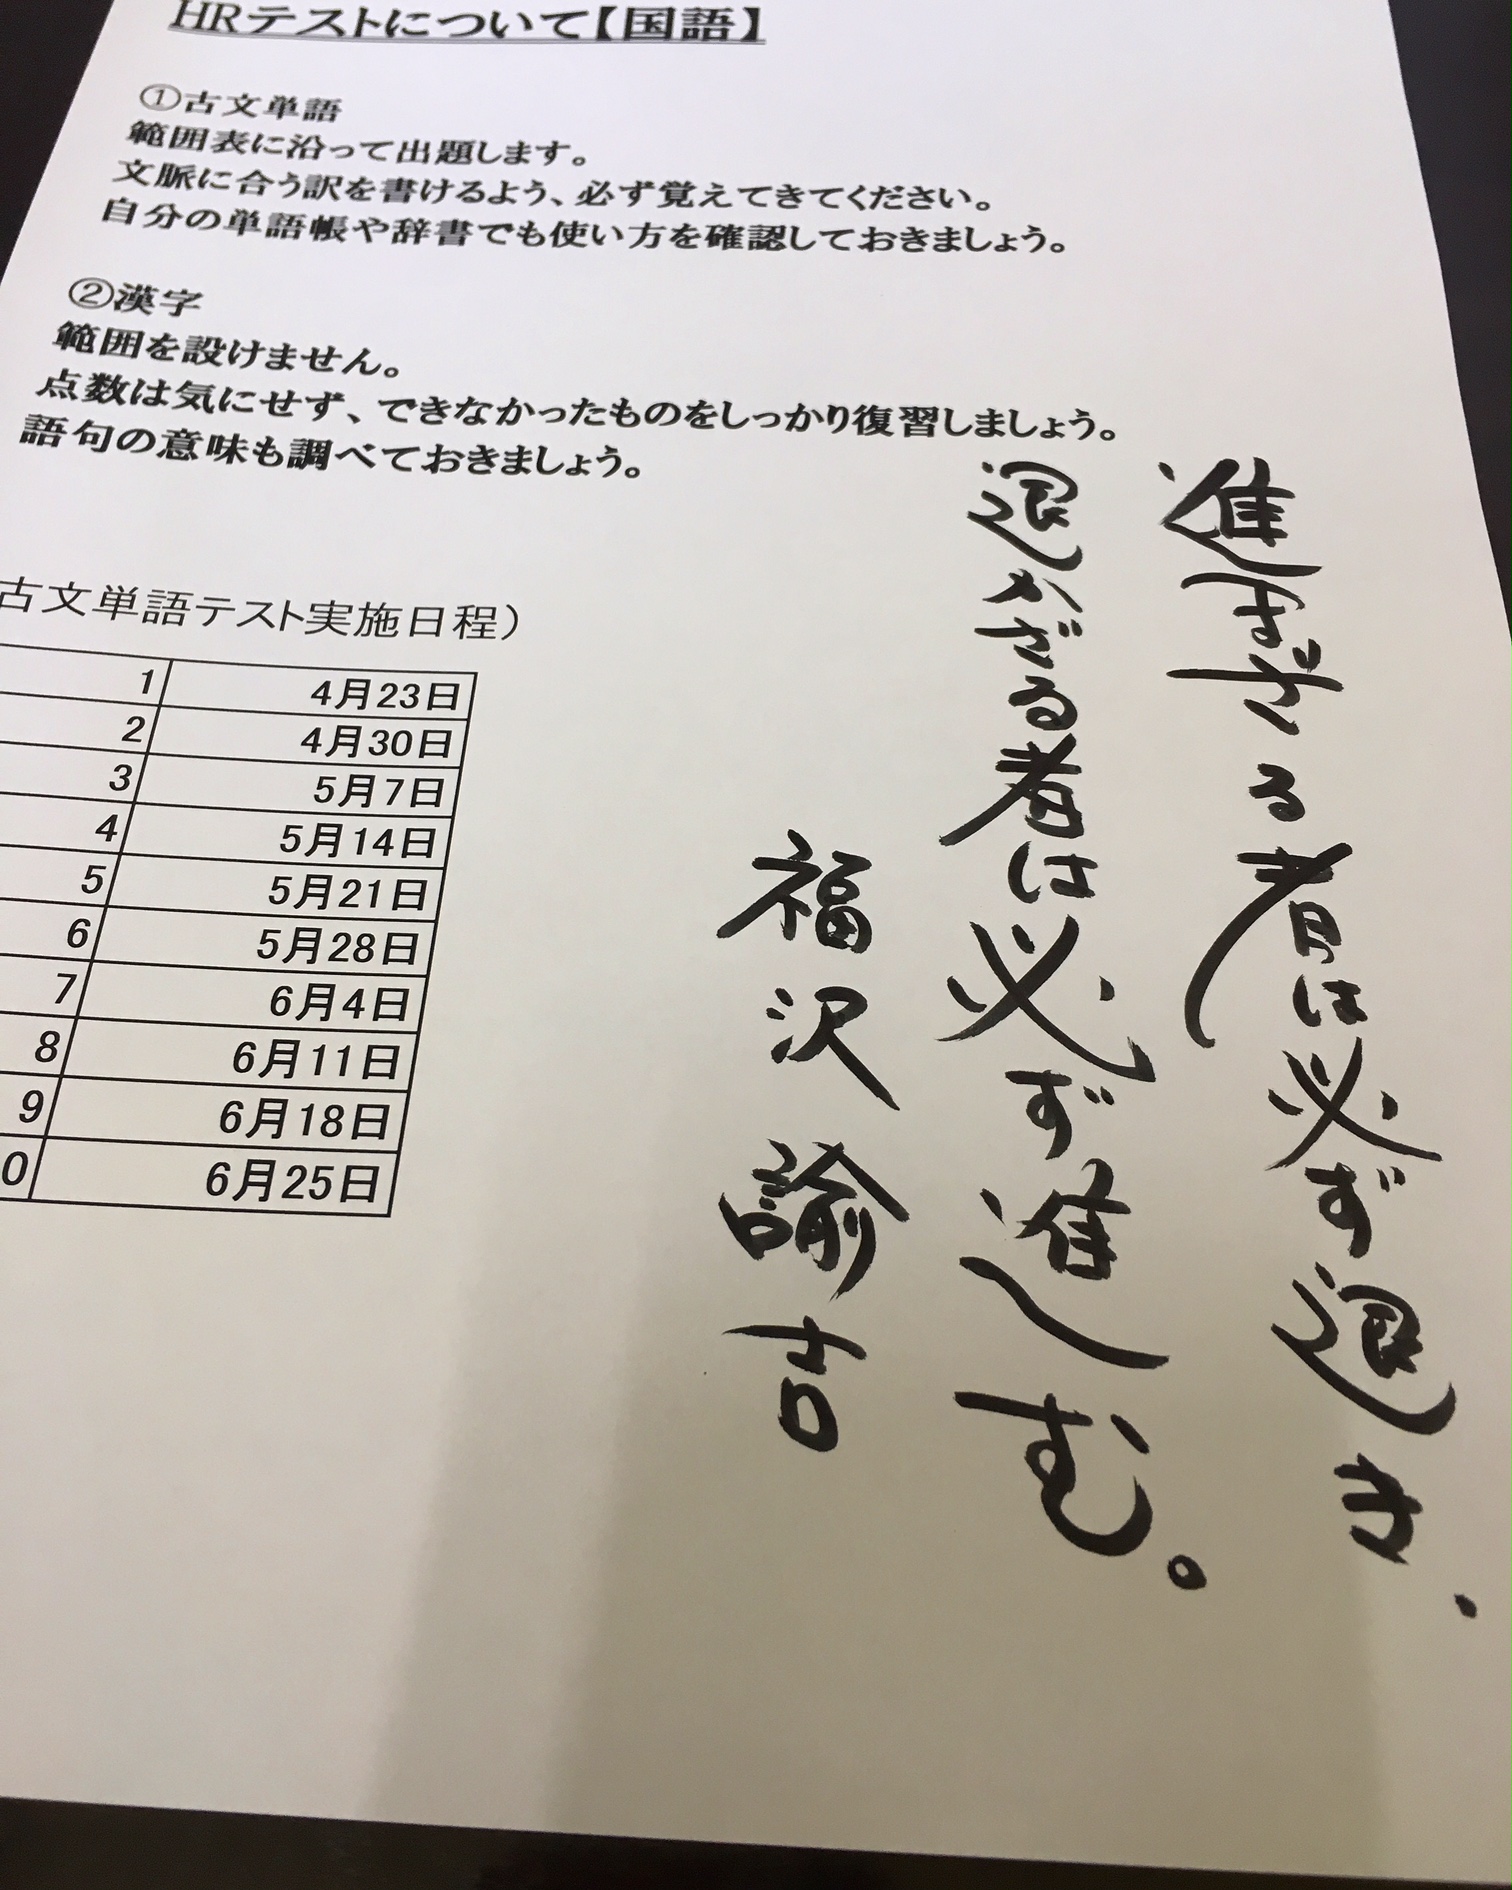 HRテストについて【国語】
①古文単語
範囲表に沿って出題します。
文脈に合う訳を書けるよう、必ず覚えてきてください。
自分の単語帳や辞書でも使い方を確認しておきましょう。
②漢字
範囲を設けません。
点数は気にせず、できなかったものをしっかり復習しましょう。
語句の意味も調べておきましょう。
古文単語テスト実施日程）
1 4月23日
2 4月30日
3 5月7日
4 5月14日
5 5月21日
6 5月28日
7 6月4日
8 6月11日
9 6月18日
0 6月25日
進まざる者は必ず退き、
退かざる者は必ず進む。
福沢諭吉